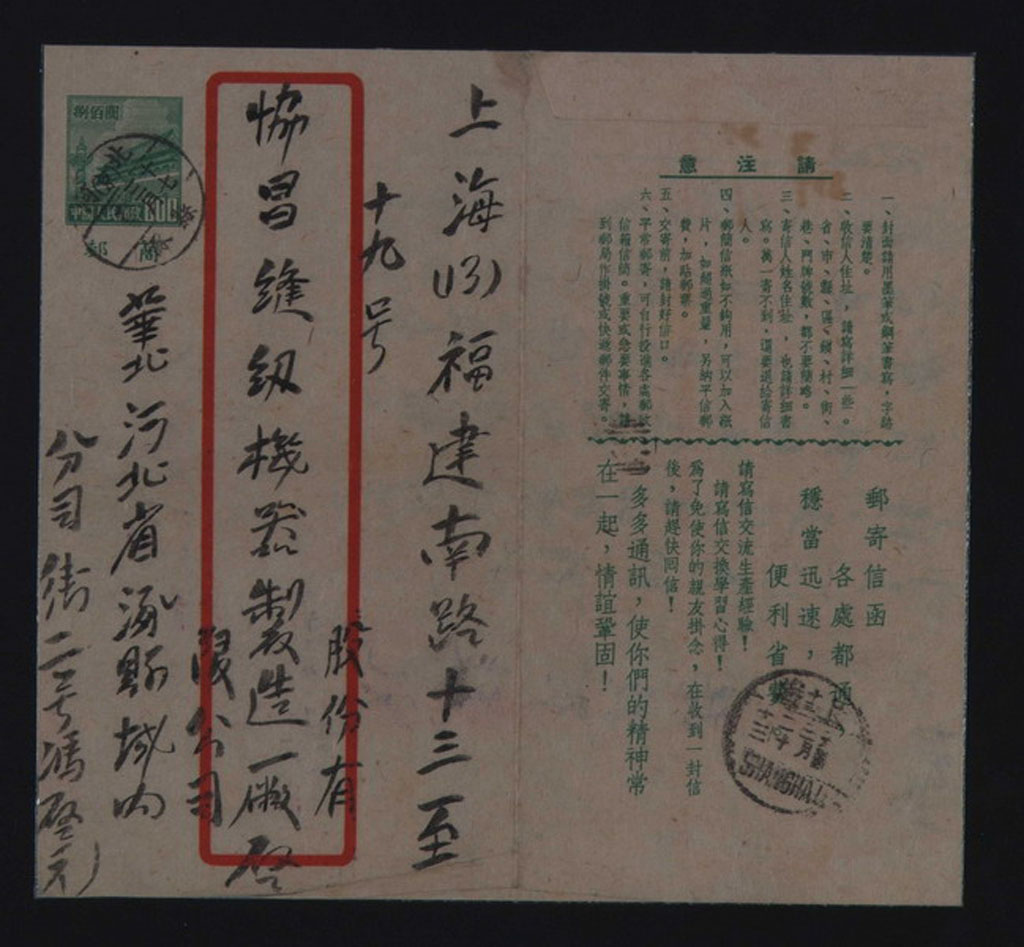 請注意
一、封面請用墨筆或鋼筆書寫，字跡
要清楚。
二、收信人住址，請寫詳細一些。
省、市、縣、區、鄉、村、街、
巷、門牌號數，都不要簡略。
三、寄信人姓名住址，也請詳細書
寫。萬一寄不到，還要退給寄信
人。
四、郵簡信紙如不夠用，可以加入紙
片，如超過重量，另納平信郵
費，加貼郵票。
五、交寄前，請封好信口。
六、平常郵寄，可自行投進各處郵政
信報信筒。重要或急要事情，請
到郵局作掛號或快遞郵件交寄。
郵寄信函
各處都通，
穩當迅速，
便利省費
請寫信交流生產經驗！
請寫信交換學習心得！
為了免使你的親友掛念，在收到一封信
後，請趕快回信！
多多通訊，使你們的精神常
在一起，情誼鞏固！
上海
SHANGHAI
上海(13)福建南路十三至
十九号
協昌縫紉機器製造一廠啓
股份有
限公司
捌佰圓
中國人民郵政
800
郵簡
華北河北省涿縣城內
分司街二号馮啓